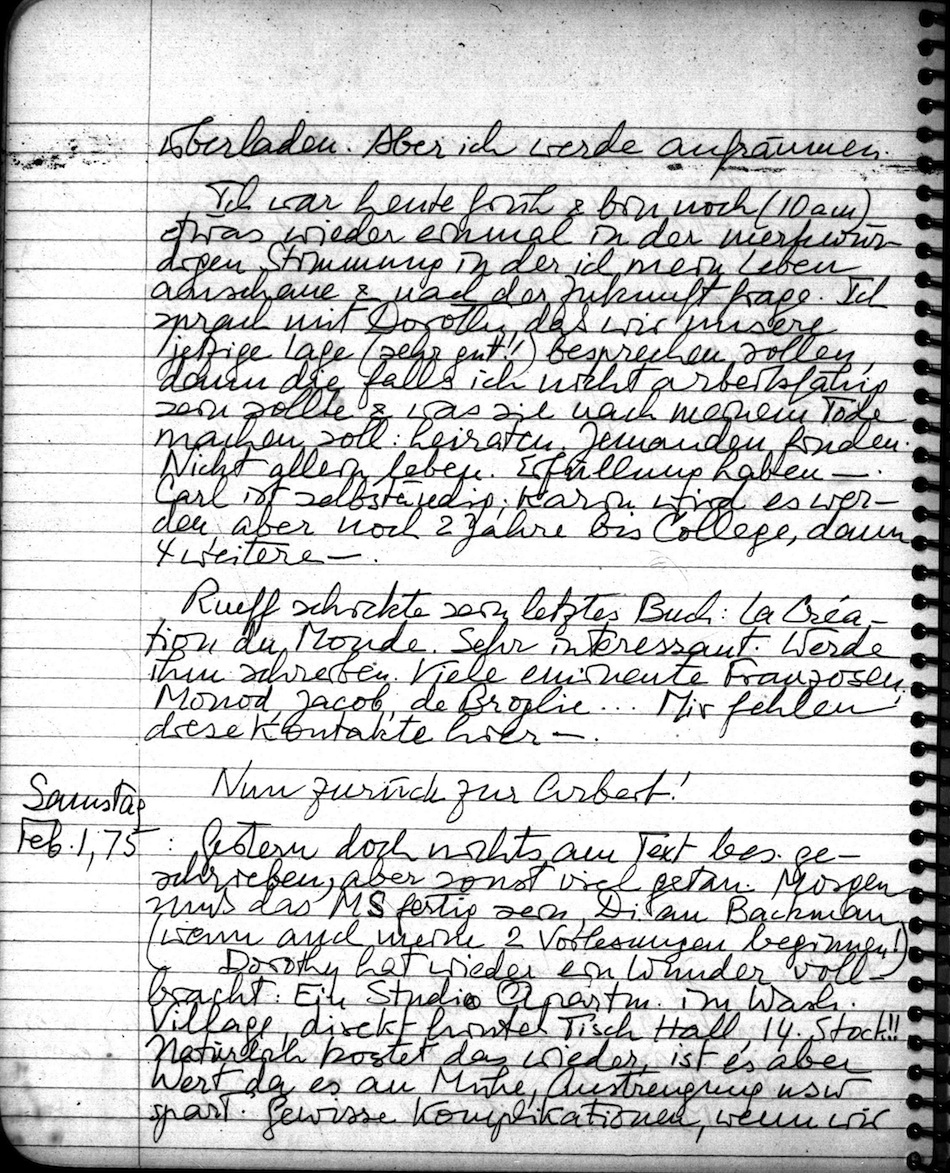 überladen. Aber ich werde aufräumen.
Ich war heute früh & bin noch (10 am)
etwas wieder einmal in der merkwür-
digen Stimmung in der ich mein Leben
anschaue & nach der Zukunft frage. Ich
sprach mit Dorothy, das wir unsere
jetzige Lage (sehr gut!!) besprechen sollen,
dann die falls ich nicht arbeitsfähig
sein sollte & was sie nach meinem Tode
machen soll: heiraten, Jemanden finden.
Nicht allein leben. Erfüllung haben —.
Carl ist selbständig; Karin wird es wer-
den, aber noch 2 Jahre bis College, dann
4 weitere —.
Rueff schickte sein letztes Buch: La Créa-
tion du Monde. Sehr interessant. Werde
ihm schreiben. Viele eminente Franzosen,
Monod, Jacob, de Broglie ... Mir fehlen
diese Kontakte hier —.
Nun zurück zur Arbeit!
Samstag
Feb. 1, 75 : Gestern doch nichts am Text bes. ge-
schrieben, aber sonst viel getan. Morgen
muss das MS fertig sein, Di. an Backman
(wenn auch meine 2 Vorlesungen beginnen!)
Dorothy hat wieder ein Wunder voll-
bracht: Ein Studio Apartm. im Wash.
Village, direkt hinter Tisch Hall, 14. Stock!!
Natürlich kostet das wieder, ist es aber
Wert da es an Mühe, Anstrengung usw
spart. Gewisse Komplikationen, wenn wir